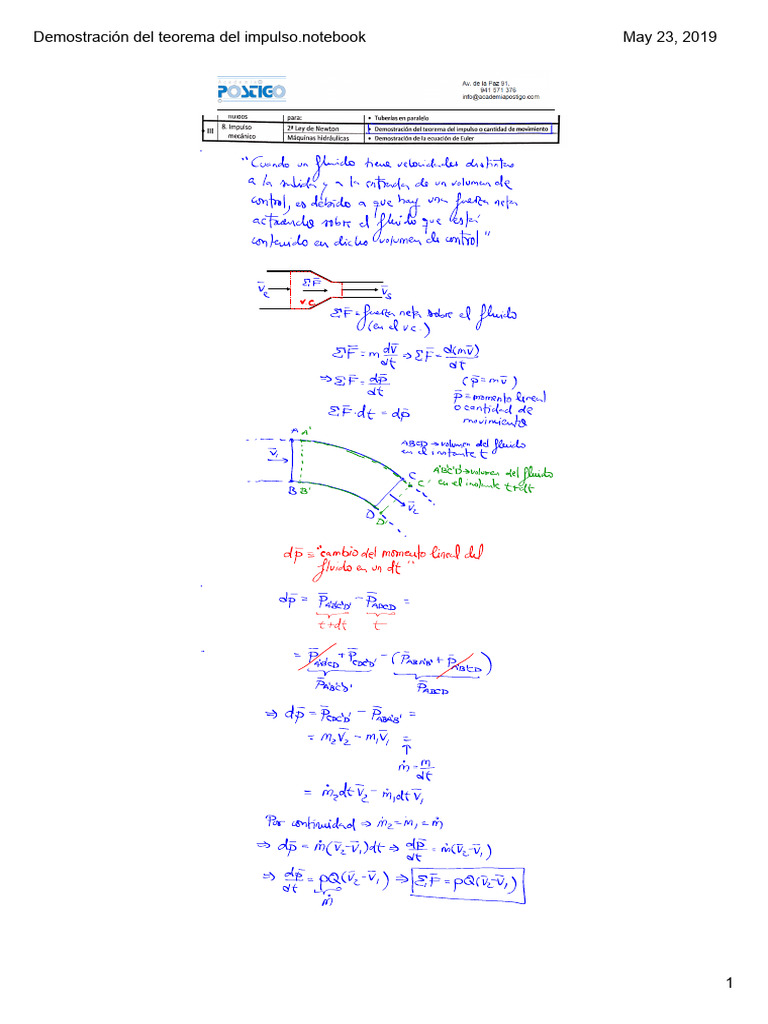 Demostración del teorema del impulso.notebook May 23, 2019
Academia
POSTIGO
Av. de la Paz 91,
941 571 376
info@academiapostigo.com
fluidos para: • Tuberías en paralelo
III 8. Impulso mecánico 2ª Ley de Newton • Demostración del teorema del impulso o cantidad de movimiento
Máquinas hidráulicas • Demostración de la ecuación de Euler
"Cuando un fluido tiene velocidades distintas
a la salida y a la entrada de un volumen de
control, es debido a que hay una fuerza neta
actuando sobre el fluido que está
contenido en dicho volumen de control"
V̄e ΣF̄ V̄s
v.c.
ΣF̄ = fuerza neta sobre el fluido
(en el v.c.)
ΣF̄ = m dv̄/dt ⇒ ΣF̄ = d(mv̄)/dt
⇒ ΣF̄ = dp̄/dt (p̄ = mv̄)
p̄ = momento lineal
o cantidad de
movimiento
ΣF̄·dt = dp̄
A A'
ABCD → volumen del fluido
en el instante t
V̄1
A'B'C'D' → volumen del fluido
en el instante t+dt
B B'
C C'
D D'
V̄2
dp̄ ≡ "cambio del momento lineal del
fluido en un dt"
dp̄ = P̄A'B'C'D' − P̄ABCD =
t+dt t
= P̄A'B'CD + P̄CDC'D' − (P̄ABA'B' + P̄A'B'CD)
P̄A'B'C'D' P̄ABCD
⇒ dp̄ = P̄CDC'D' − P̄ABA'B' =
= m2V̄2 − m1V̄1 =
↑
ṁ = m/dt
= ṁ2dt V̄2 − ṁ1dt V̄1
Por continuidad ⇒ ṁ2 = ṁ1 = ṁ
⇒ dp̄ = ṁ(V̄2−V̄1)dt ⇒ dp̄/dt = ṁ(V̄2−V̄1)
⇒ dp̄/dt = ρQ(V̄2−V̄1) ⇒ ΣF̄ = ρQ(V̄2−V̄1)
ṁ
1